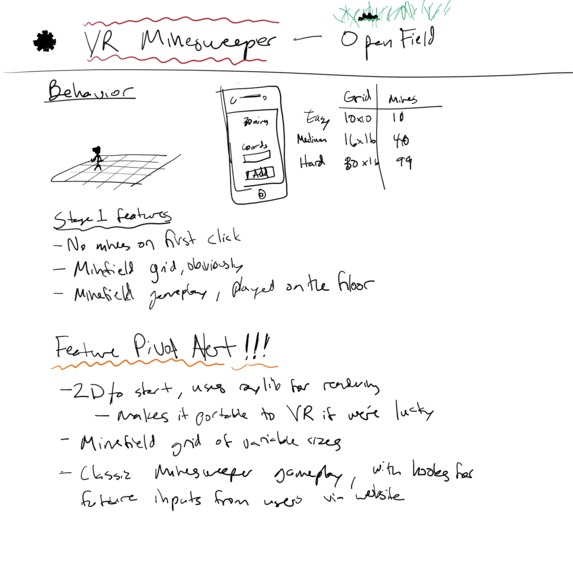 VR Minesweeper — Open Field
Behavior
30 mines
coords
Add
Grid Mines
Easy 10x10 10
Medium 16x16 40
Hard 30x16 99
Stage 1 features
- No mines on first click
- Minefield grid, obviously
- Minefield gameplay, played on the floor
Feature Pivot Alert !!!
- 2D to start, uses raylib for rendering
- makes it portable to VR if we're lucky
- Minefield grid of variable sizes
- Classic Minesweeper gameplay, with hooks for
future inputs from users via website